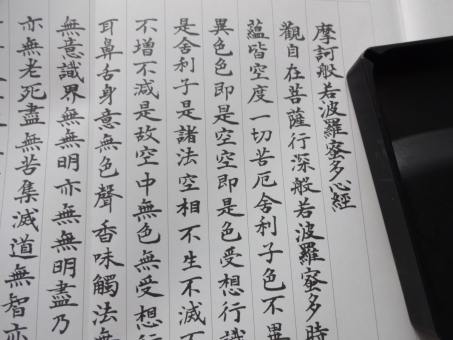 摩訶般若波羅蜜多心經
觀自在菩薩行深般若波羅蜜多時
蘊皆空度一切苦厄舍利子色不異
異色色即是空空即是色受想行識
是舍利子是諸法空相不生不滅不
不增不減是故空中無色無受想行
耳鼻舌身意無色聲香味觸法無
無意識界無無明亦無無明盡乃
亦無老死盡無苦集滅道無智亦